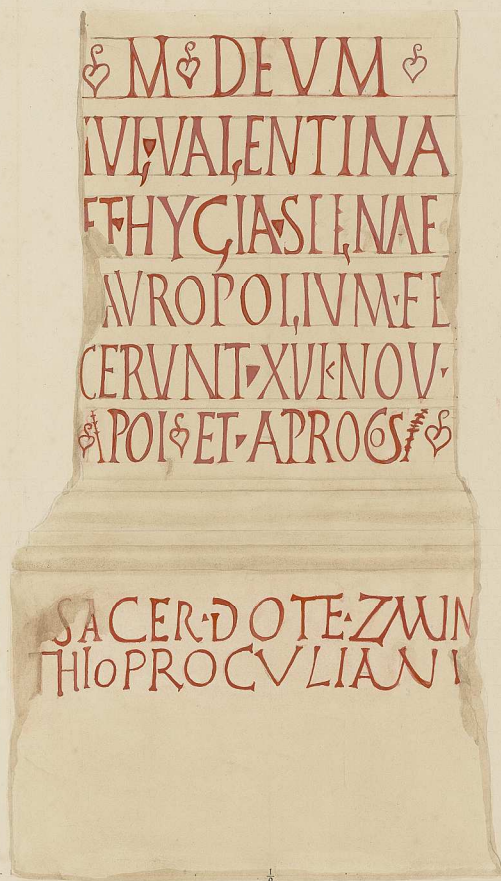 ❦ M ❦ DEVM ❦
IVL VALENTINA
ET HYGIA SILNAE
TAVROPOLIVM·FE
CERVNT XVI K NOV·
APOL ❦ ET APRO COS ❦
SACER·DOTE·ZMIN
THIO PROCVLIANI